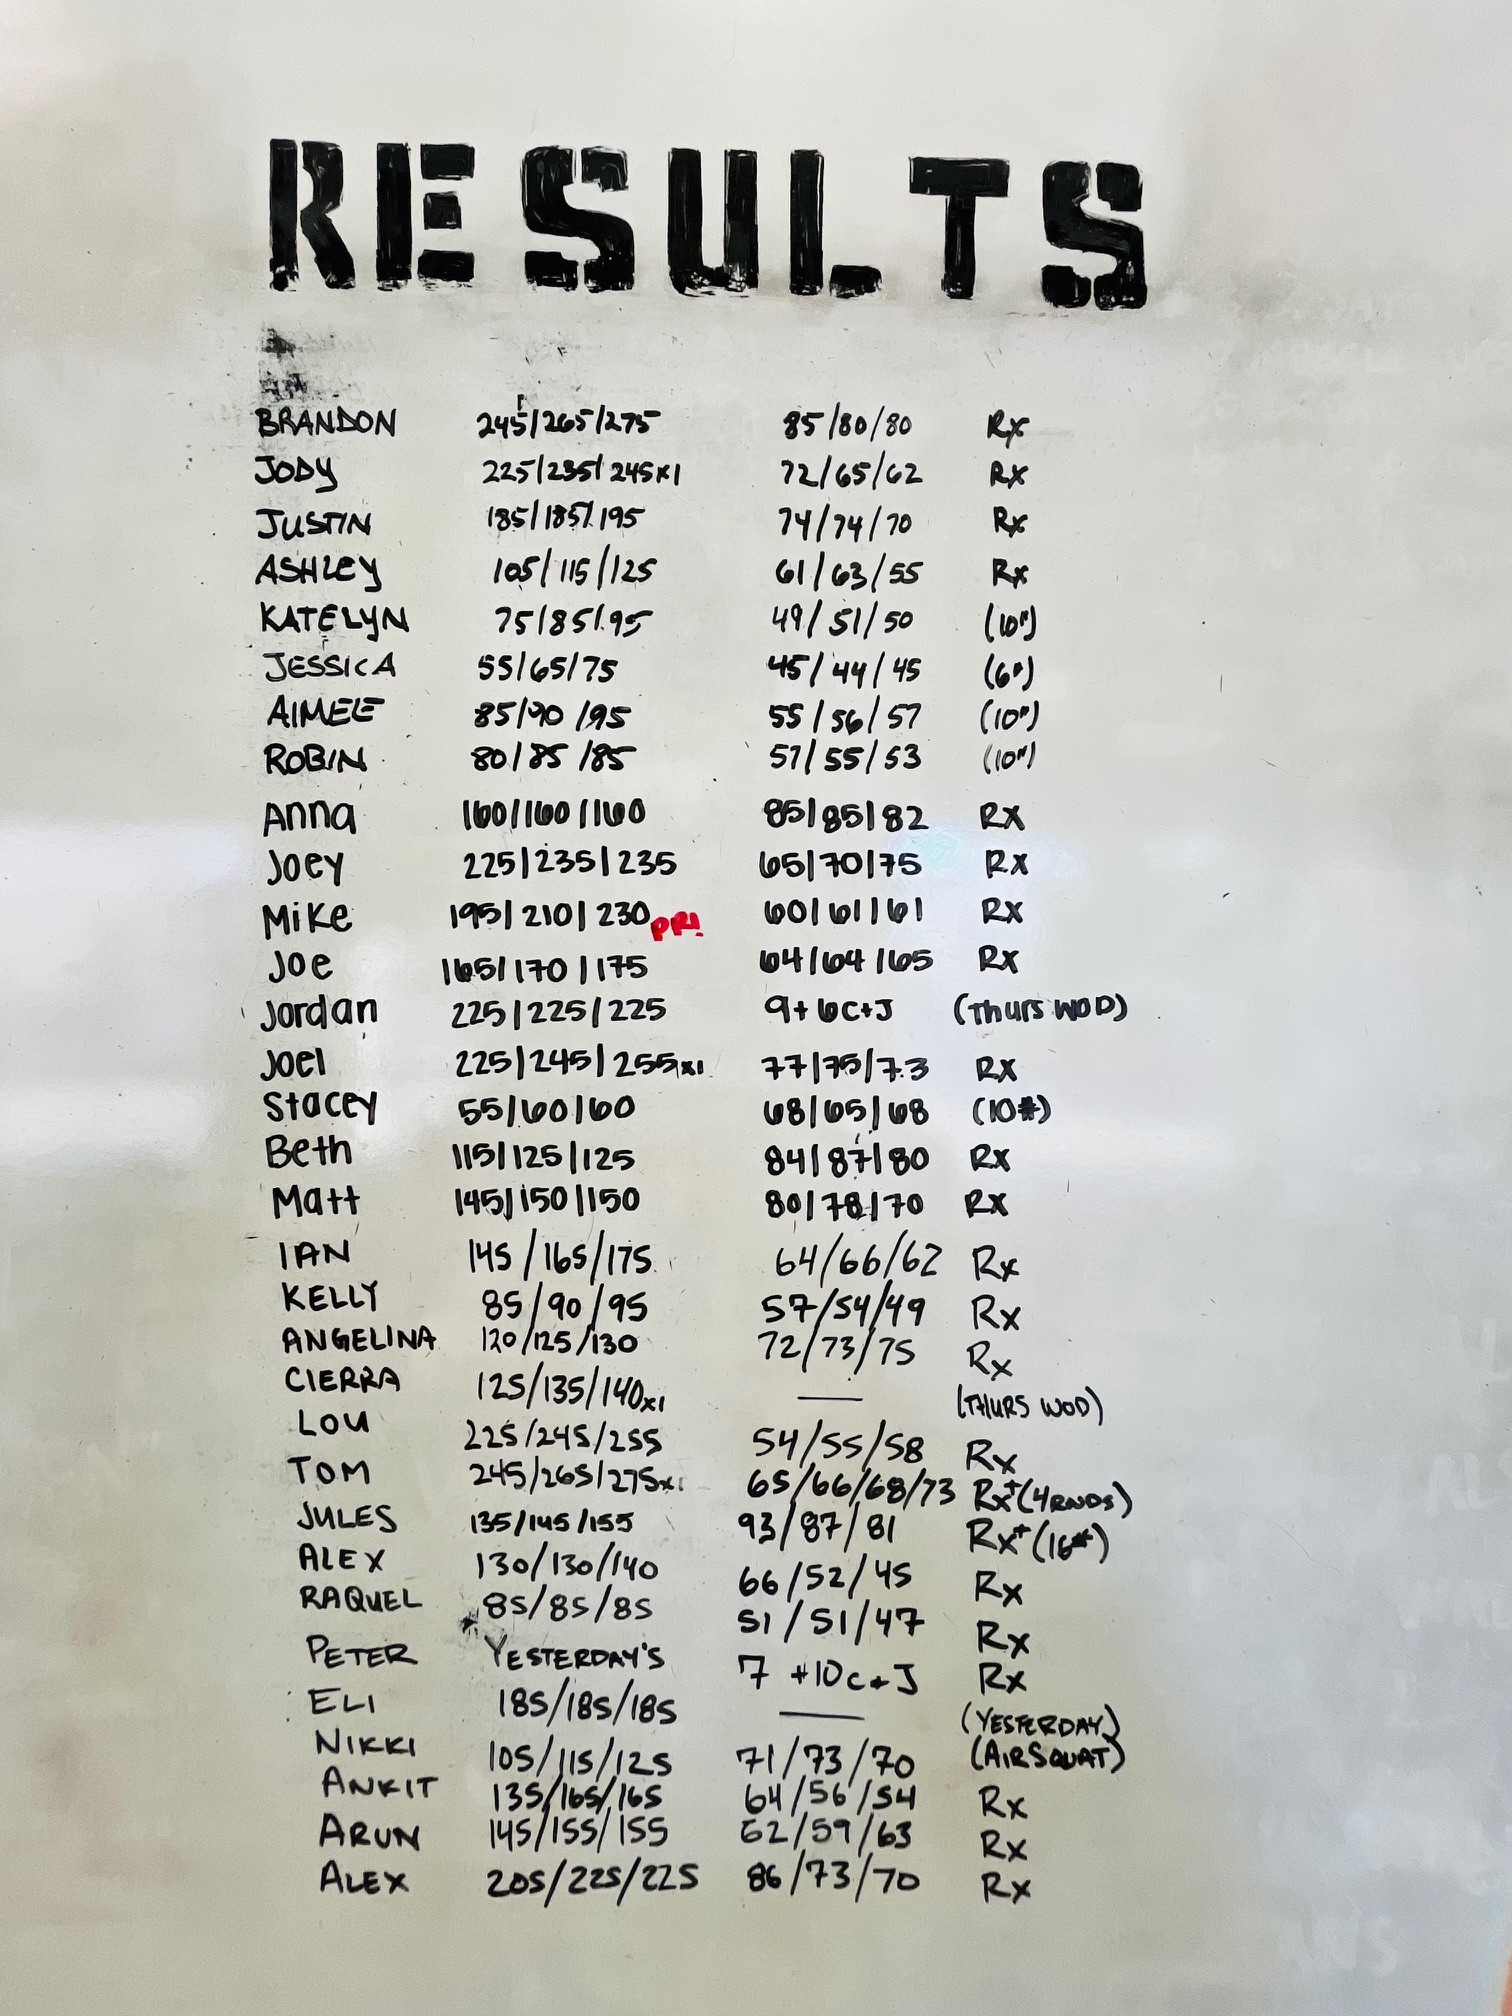 RESULTS
BRANDON 245/265/275 85/80/80 Rx
JODY 225/235/245x1 72/65/62 Rx
JUSTIN 185/185/195 74/74/70 Rx
ASHLEY 105/115/125 61/63/55 Rx
KATELYN 75/85/95 49/51/50 (10")
JESSICA 55/65/75 45/44/45 (6#)
AIMEE 85/90/95 55/56/57 (10")
ROBIN 80/85/85 57/55/53 (10")
Anna 160/160/160 85/85/82 Rx
Joey 225/235/235 65/70/75 Rx
Mike 195/210/230 PR! 60/61/61 Rx
Joe 165/170/175 64/64/65 Rx
Jordan 225/225/225 9+6C+J (Thurs WOD)
Joel 225/245/255x1 77/75/73 Rx
Stacey 55/60/60 68/65/68 (10#)
Beth 115/125/125 84/87/80 Rx
Matt 145/150/150 80/78/70 Rx
IAN 145/165/175 64/66/62 Rx
KELLY 85/90/95 57/54/49 Rx
ANGELINA 120/125/130 72/73/75 Rx
CIERRA 125/135/140x1 — (THURS WOD)
LOU 225/245/255 54/55/58 Rx
TOM 245/265/275x1 65/66/68/73 Rx+(4RNDS)
JULES 135/145/155 93/87/81 Rx+(16#)
ALEX 130/130/140 66/52/45 Rx
RAQUEL 85/85/85 51/51/47 Rx
PETER YESTERDAY'S 7+10C+J Rx
ELI 185/185/185 — (YESTERDAY)
NIKKI 105/115/125 71/73/70 (AIRSQUAT)
ANKIT 135/165/165 64/56/54 Rx
ARUN 145/155/155 62/59/63 Rx
ALEX 205/225/225 86/73/70 Rx